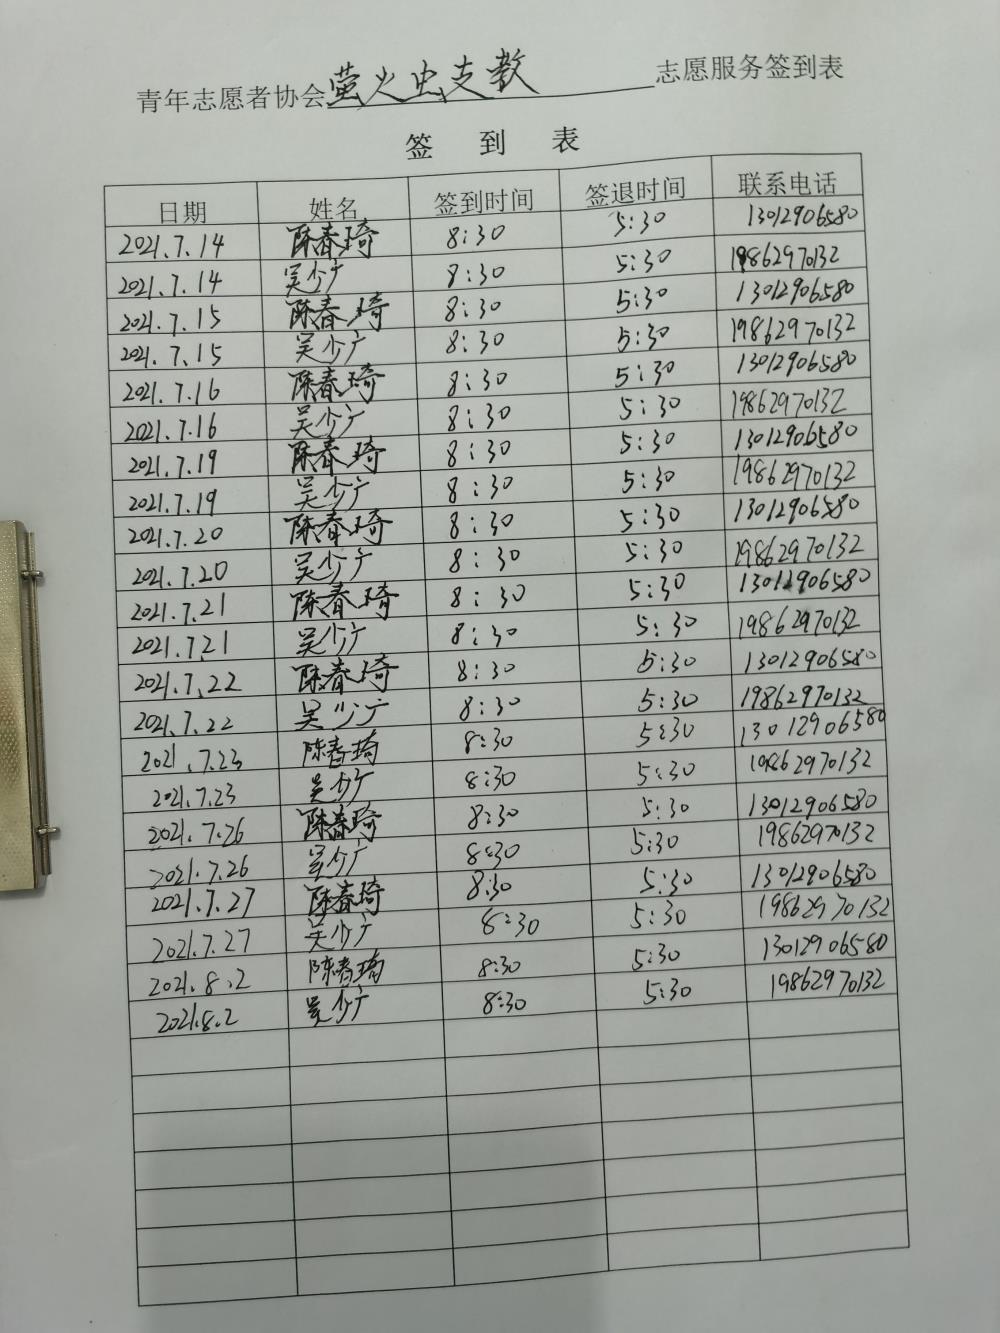 青年志愿者协会萤火虫支教志愿服务签到表
签 到 表
日期 姓名 签到时间 签退时间 联系电话
2021.7.14 陈春琦 8:30 5:30 13012906580
2021.7.14 吴少广 8:30 5:30 19862970132
2021.7.15 陈春琦 8:30 5:30 13012906580
2021.7.15 吴少广 8:30 5:30 19862970132
2021.7.16 陈春琦 8:30 5:30 13012906580
2021.7.16 吴少广 8:30 5:30 19862970132
2021.7.19 陈春琦 8:30 5:30 13012906580
2021.7.19 吴少广 8:30 5:30 19862970132
2021.7.20 陈春琦 8:30 5:30 13012906580
2021.7.20 吴少广 8:30 5:30 19862970132
2021.7.21 陈春琦 8:30 5:30 13012906580
2021.7.21 吴少广 8:30 5:30 19862970132
2021.7.22 陈春琦 8:30 5:30 13012906580
2021.7.22 吴少广 8:30 5:30 19862970132
2021.7.23 陈春琦 8:30 5:30 13012906580
2021.7.23 吴少广 8:30 5:30 19862970132
2021.7.26 陈春琦 8:30 5:30 13012906580
2021.7.26 吴少广 8:30 5:30 19862970132
2021.7.27 陈春琦 8:30 5:30 13012906580
2021.7.27 吴少广 8:30 5:30 19862970132
2021.8.2 陈春琦 8:30 5:30 13012906580
2021.8.2 吴少广 8:30 5:30 19862970132